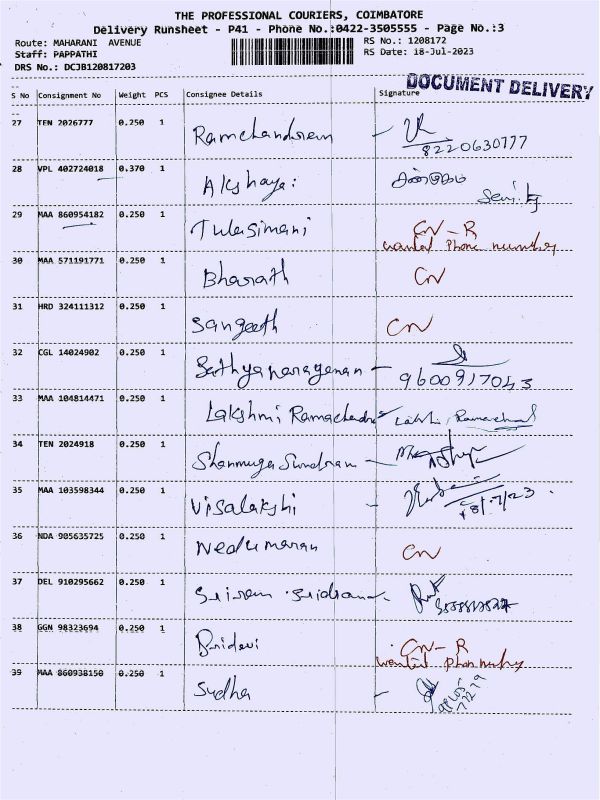 THE PROFESSIONAL COURIERS, COIMBATORE
Delivery Runsheet - P41 - Phone No.:0422-3505555 - Page No.:3
Route: MAHARANI AVENUE RS No.: 1208172
Staff: PAPPATHI RS Date: 18-Jul-2023
DRS No.: DCJB120817203
DOCUMENT DELIVERY
S No Consignment No Weight PCS Consignee Details Signature
27 TEN 2026777 0.250 1 Ramchandran
8220630777
28 VPL 402724018 0.370 1 Akshaya
29 MAA 860954182 0.250 1 Tulasimani CN - R
wanted Phone number
30 MAA 571191771 0.250 1 Bharath CN
31 HRD 324111312 0.250 1 Sangeeth CN
32 CGL 14024902 0.250 1 Sathyanarayanan
9600917043
33 MAA 104814471 0.250 1 Lakshmi Ramachandra
34 TEN 2024918 0.250 1 Shanmuga Sundram
35 MAA 103598344 0.250 1 Visalakshi
18/7/23
36 NDA 905635725 0.250 1 Nedumaran CN
37 DEL 910295662 0.250 1
38 GGN 98323694 0.250 1 CN - R
wanted
39 MAA 860938150 0.250 1 Sudha